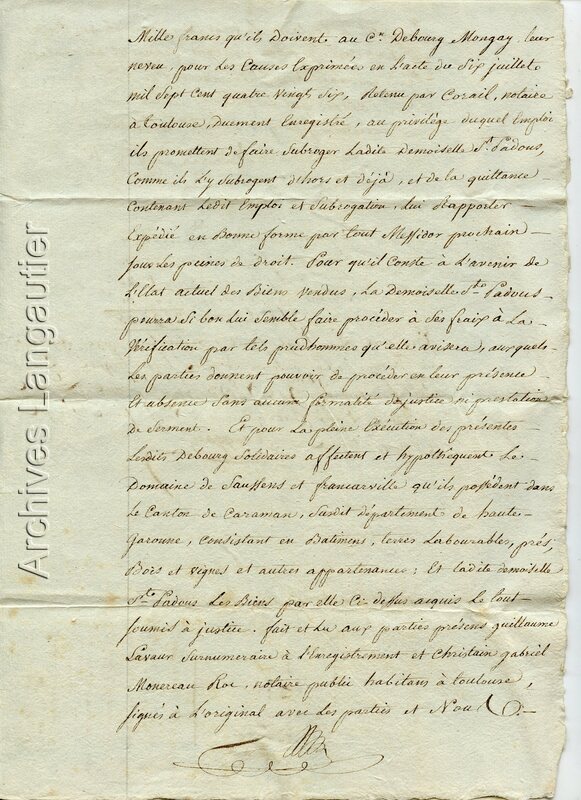 Mille francs qu'ils Doivent au Cn. Debourg Mongay, leur
neveu, pour Les Causes Exprimées en L'acte du Six juillet
mil Sept Cent quatre Vingt Six, Retenu par Corail, notaire
à toulouse, Duement Enregistré, au privilége duquel Emploi
ils promettent de faire Subroger Ladite Demoiselle Ste. Padous,
Comme ils L'y Subrogent d'hors et déjà, et de la quittance
Contenant Ledit Emploi et Subrogation, lui Rapporter
Expédié en Bonne forme par tout Messidor prochain
sous Les peines de droit. Pour qu'il Conste à L'avenir de
L'Etat actuel des Biens vendus, La Demoiselle Ste. Padous
pourra Si bon Lui Semble faire procéder à Ses fraix à La
Vérification par tels prudhommes qu'elle avisera, auxquels
Les parties donnent pouvoir de procéder en leur présence
Et absence Sans aucune formalité de justice ni prestation
de Serment. Et pour La pleine Exécution des présentes
Lesdits Debourg Solidaires affectent et hypothéquent Le
Domaine de Saussens et francarville qu'ils possédent dans
Le Canton de Caraman, susdit département de haute
Garonne, consistant en Batimens, terres Labourables, prés,
Bois et vignes et autres appartenances; Et ladite demoiselle
Ste. Padous Les Biens par elle Ci-dessus acquis Le tout
soumis à justice. fait et Lu aux parties présens guillaume
Lavaur Surnumeraire à L'Enregistrement et Christain gabriel
Monereau Roc, notaire public habitans à toulouse,
signés à L'original avec Les parties et Nous
Archives Langautier